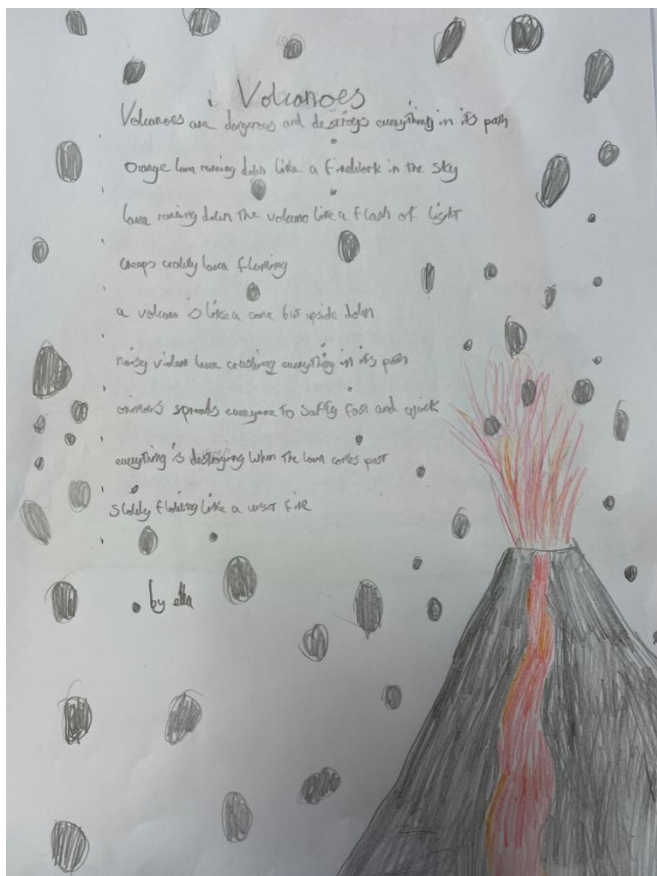 Volcanoes
Volcanoes are dangerous and destroys everything in its path
Orange lava running down like a firework in the sky
lava running down the volcano like a flash of light
creeps lava
a volcano is like a cone but upside down
noisy violent lava crushing everything in its path
spreads everyone to safty fast and quick
everything is destroying when the lava comes past
slowly flowing like a fire
by ella